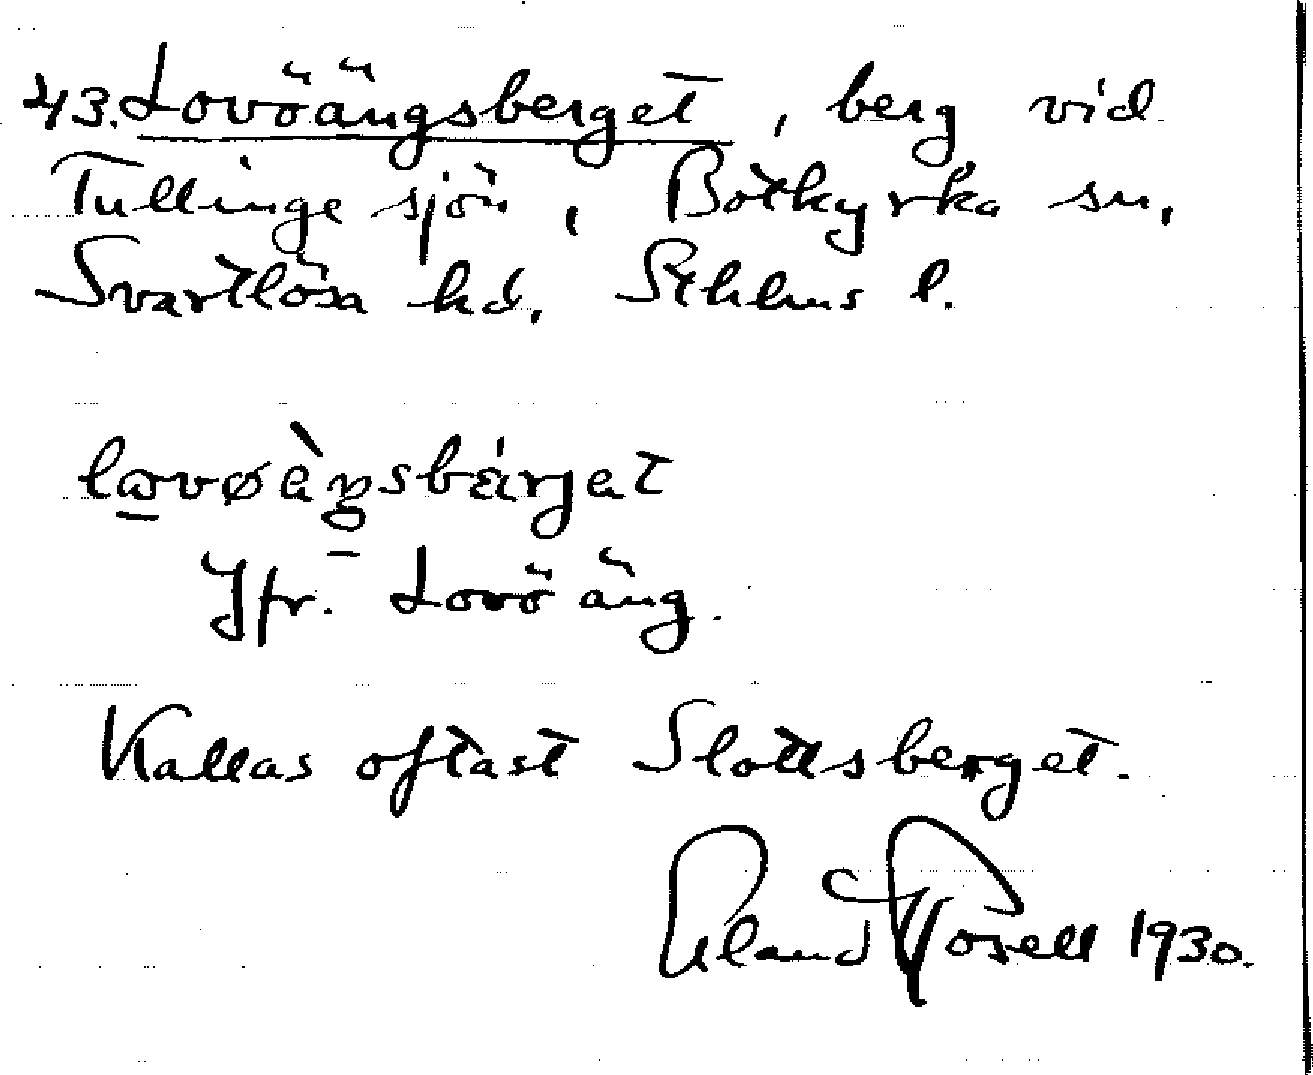 43. Lovöängsberget, berg vid
Tullinge sjön, Botkyrka sn,
Svartlösa hd, Sthlms l.
Jfr. Lovöäng.
Kallas oftast Slottsberget.
Erland Rosell 1930.